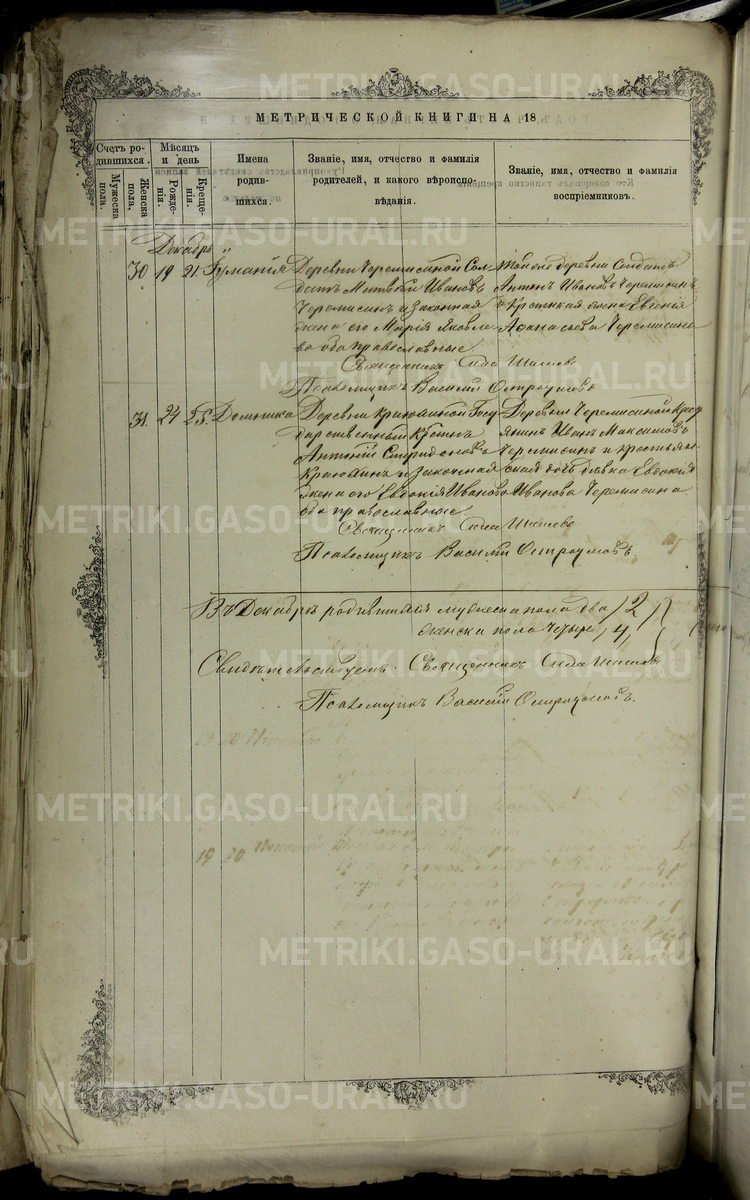 МЕТРИЧЕСКОЙ КНИГИ НА 18
Счетъ ро-
дившихся.
Мужеска
пола.
Женска
пола.
Мѣсяцъ
и день
Рожде-
нія.
Креще-
нія.
Имена
родив-
шихся.
Званіе, имя, отчество и фамилія
родителей, и какого вѣроиспо-
вѣданія.
Званіе, имя, отчество и фамилія
воспріемниковъ.
Декабрь
30 19 21
Деревни Черемисиной Сол-
датъ Матвѣй Ивановъ
Черемисинъ и законная
жена его Марія Яковле
ва оба православные
Тойже деревни Солдатъ
Антонъ Ивановъ Черемисинъ
и Крестьян жена Евгенія
Афанасьева Черемисина
Священникъ Сила Шишевъ
Псаломщикъ Василій Остроумовъ
31. 24 25. Домника
Деревни Краювиной Госу
дарственный Крестн
Антоній Спиридоновъ
Краювинъ и законная
жена его Евдокія Иванова
оба православные.
Деревни Черемисиной Крест
янинъ Иванъ Максимовъ
Черемисинъ и крестьян
дочь дѣвка
Иванова Черемисина
Священникъ Сила Шишевъ
Псаломщикъ Василій Остроумовъ.
Въ Декабрѣ родившихся мужеска пола два / 2
женска пола четыре / 4
Свидѣтельствуемъ. Священникъ Сила Шишевъ
Псаломщикъ Василій Остроумовъ.
19 20
METRIKI.GASO-URAL.RU